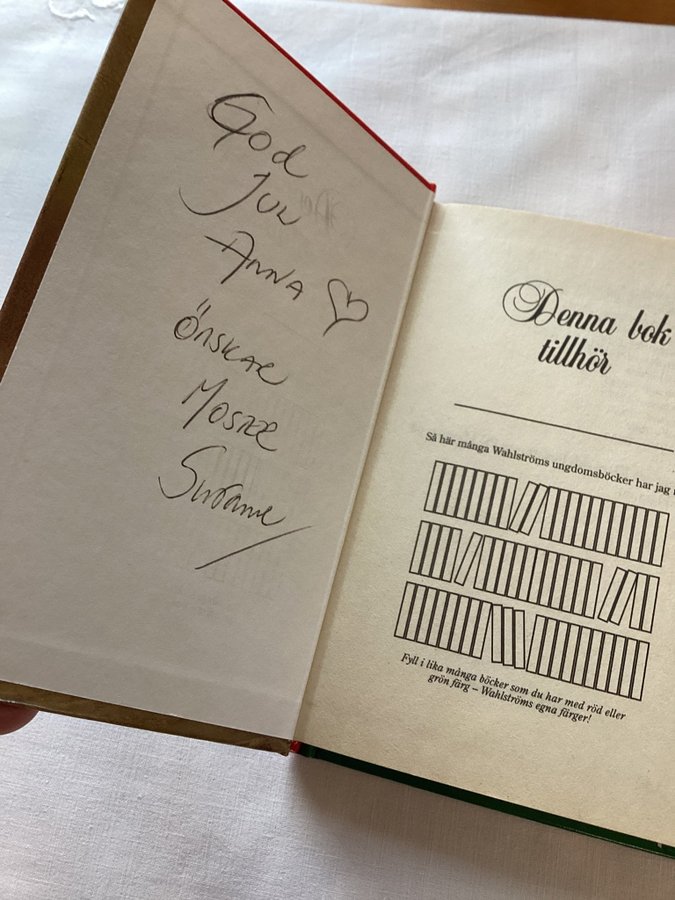 God
Jul
Anna ♡
Önskar
Moster
Denna bok
tillhör
Så här många Wahlströms ungdomsböcker har jag
Fyll i lika många böcker som du har med röd eller
grön färg – Wahlströms egna färger!